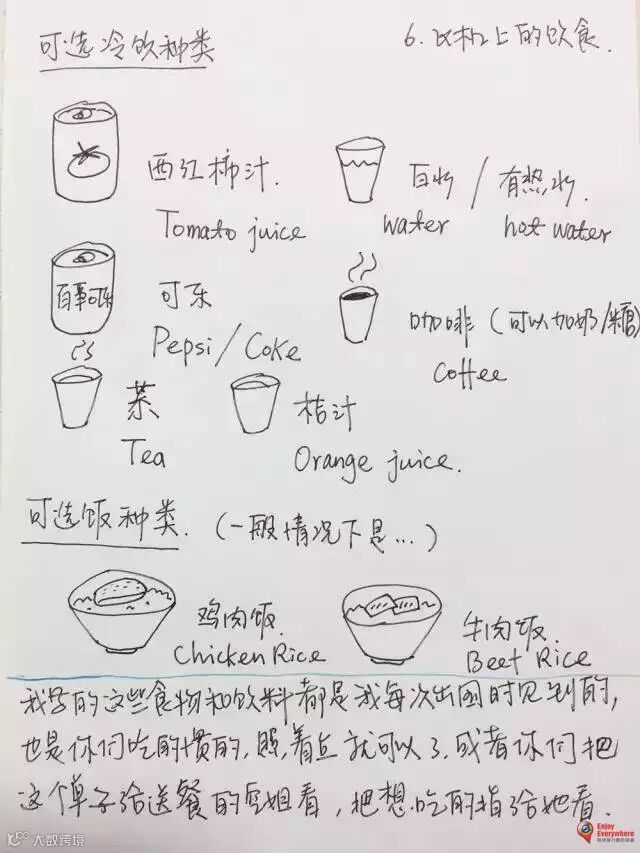 可选冷饮种类
6. 飞机上的饮食.
西红柿汁.
Tomato juice
白水 / 有热水.
water hot water
百事可乐
可乐
Pepsi / Coke
咖啡 (可以加奶/糖)
Coffee
茶
Tea
桔汁
Orange juice.
可选饭种类. (一般情况下是...)
鸡肉饭.
Chicken Rice
牛肉饭.
Beef Rice
我写的这些食物和饮料都是我每次出国时见到的,
也是你们吃的惯的, 照着点就可以了. 或者你们把
这个单子给送餐的空姐看, 把想吃的指给她看.
大数跨境
Enjoy
Everywhere